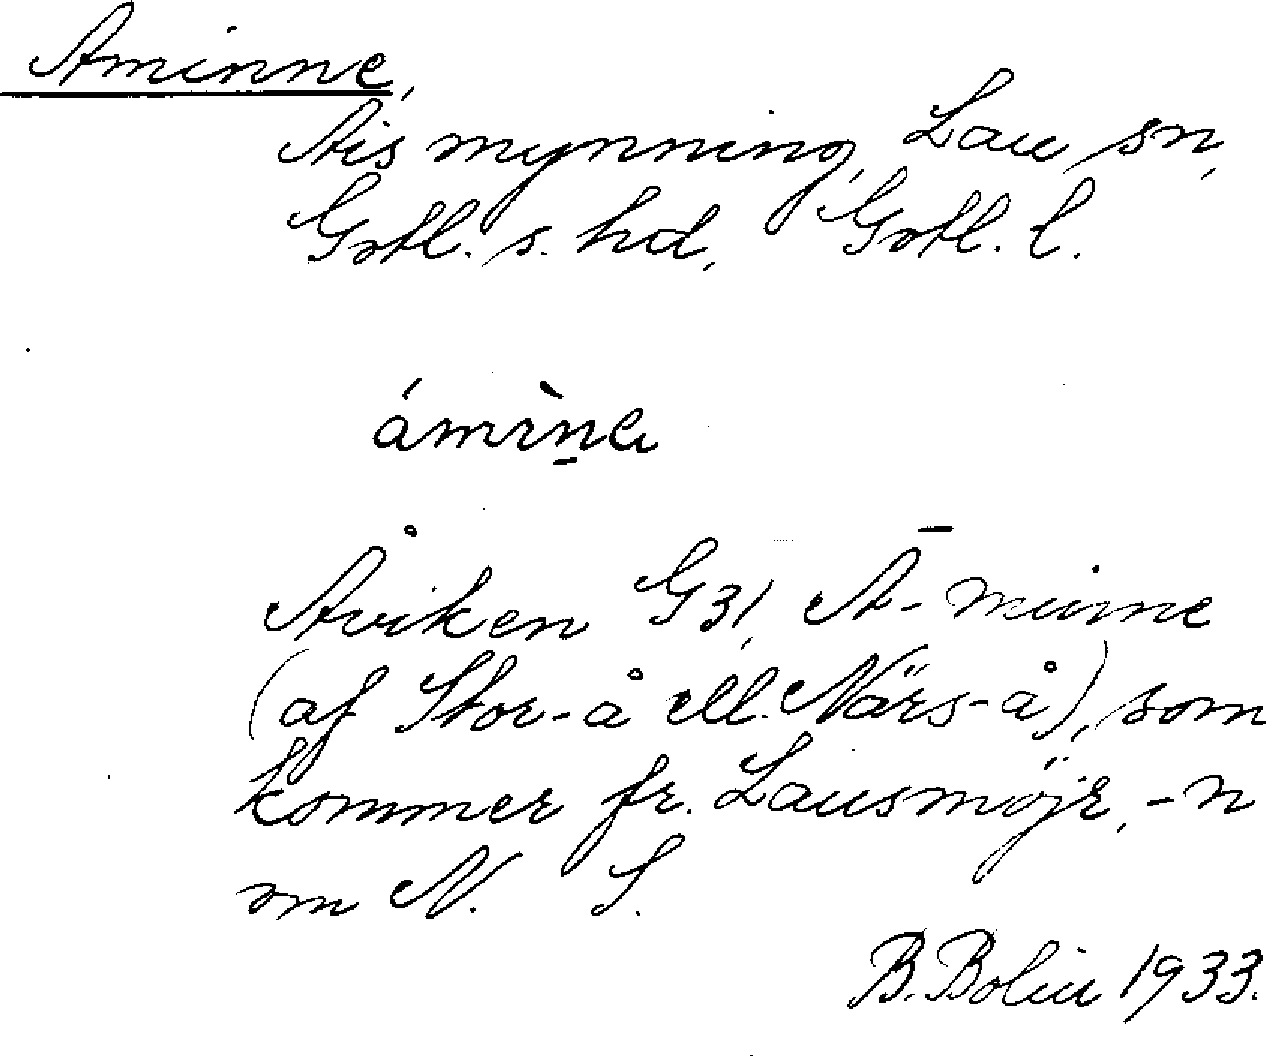 Aminne,
Ais mynning, Lau sn,
Gotl. s. hd, Gotl. l.
ámìn̠e
Åviken G31, Ā-minne
(af Stor-å ell. Närs-å), som
kommer fr. Lausmöjr, -n
om N. S.
B. Bolin 1933.